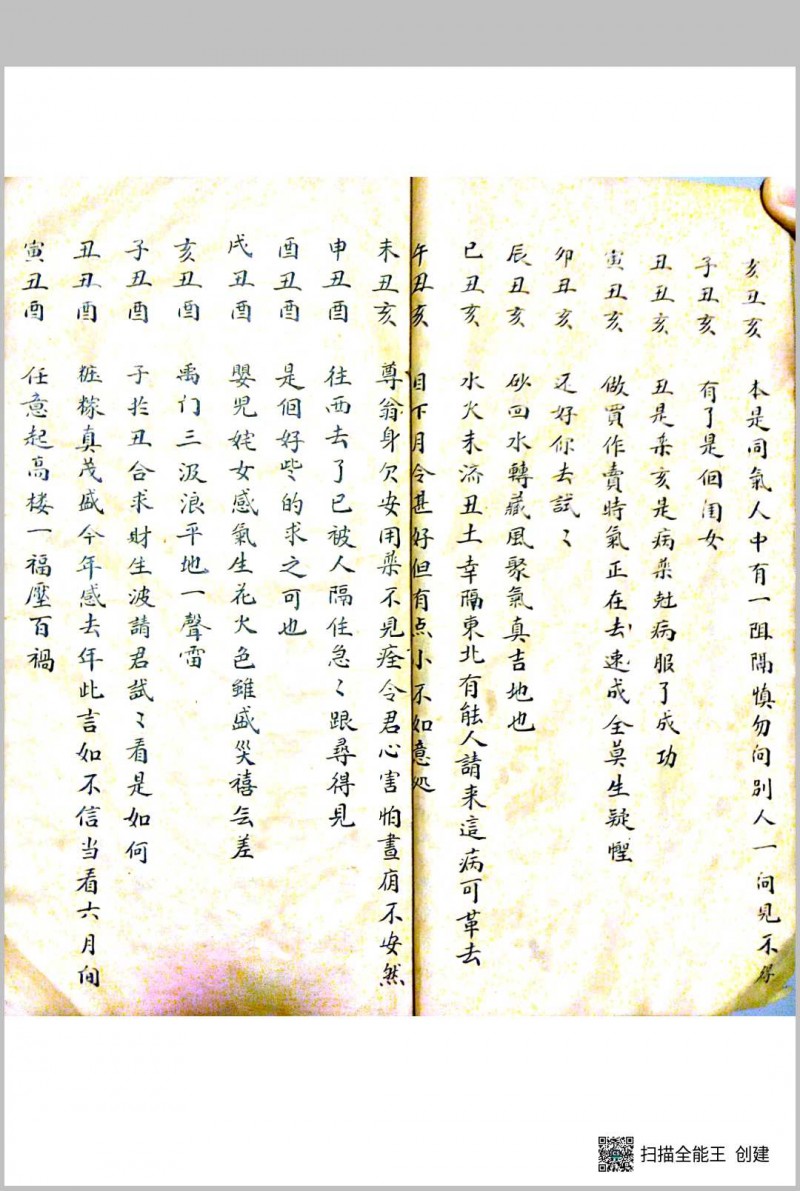 亥丑亥 本是同氣人中有一阻隔慎勿问别人一问見不得
子丑亥 有了是個闺女
丑丑亥 丑是桒亥是病藥尅病服了成功
寅丑亥 做買作賣時氣正在去速成全莫生疑
卯丑亥 还好你去試〻
辰丑亥 砂回水轉藏風聚氣真吉地也
巳丑亥 水火未济丑土幸隔東北有能人請来這病可革去
午丑亥 目下月令甚好但有点小不如意处
未丑亥 尊翁身欠安用藥不見痊令君心害怕晝夜不安然
申丑酉 往西去了已被人隔住急〻跟尋得見
酉丑酉 是個好些的求之可也
戌丑酉 嬰兒姹女感氣生花火色雖盛災禧无差
亥丑酉 禹门三汲浪平地一聲雷
子丑酉 子扵丑合求財生波請君試〻看是如何
丑丑酉 粧稼真茂盛今年感去年此言如不信当看六月间
寅丑酉 任意起高楼一福壓百禍
扫描全能王 创建